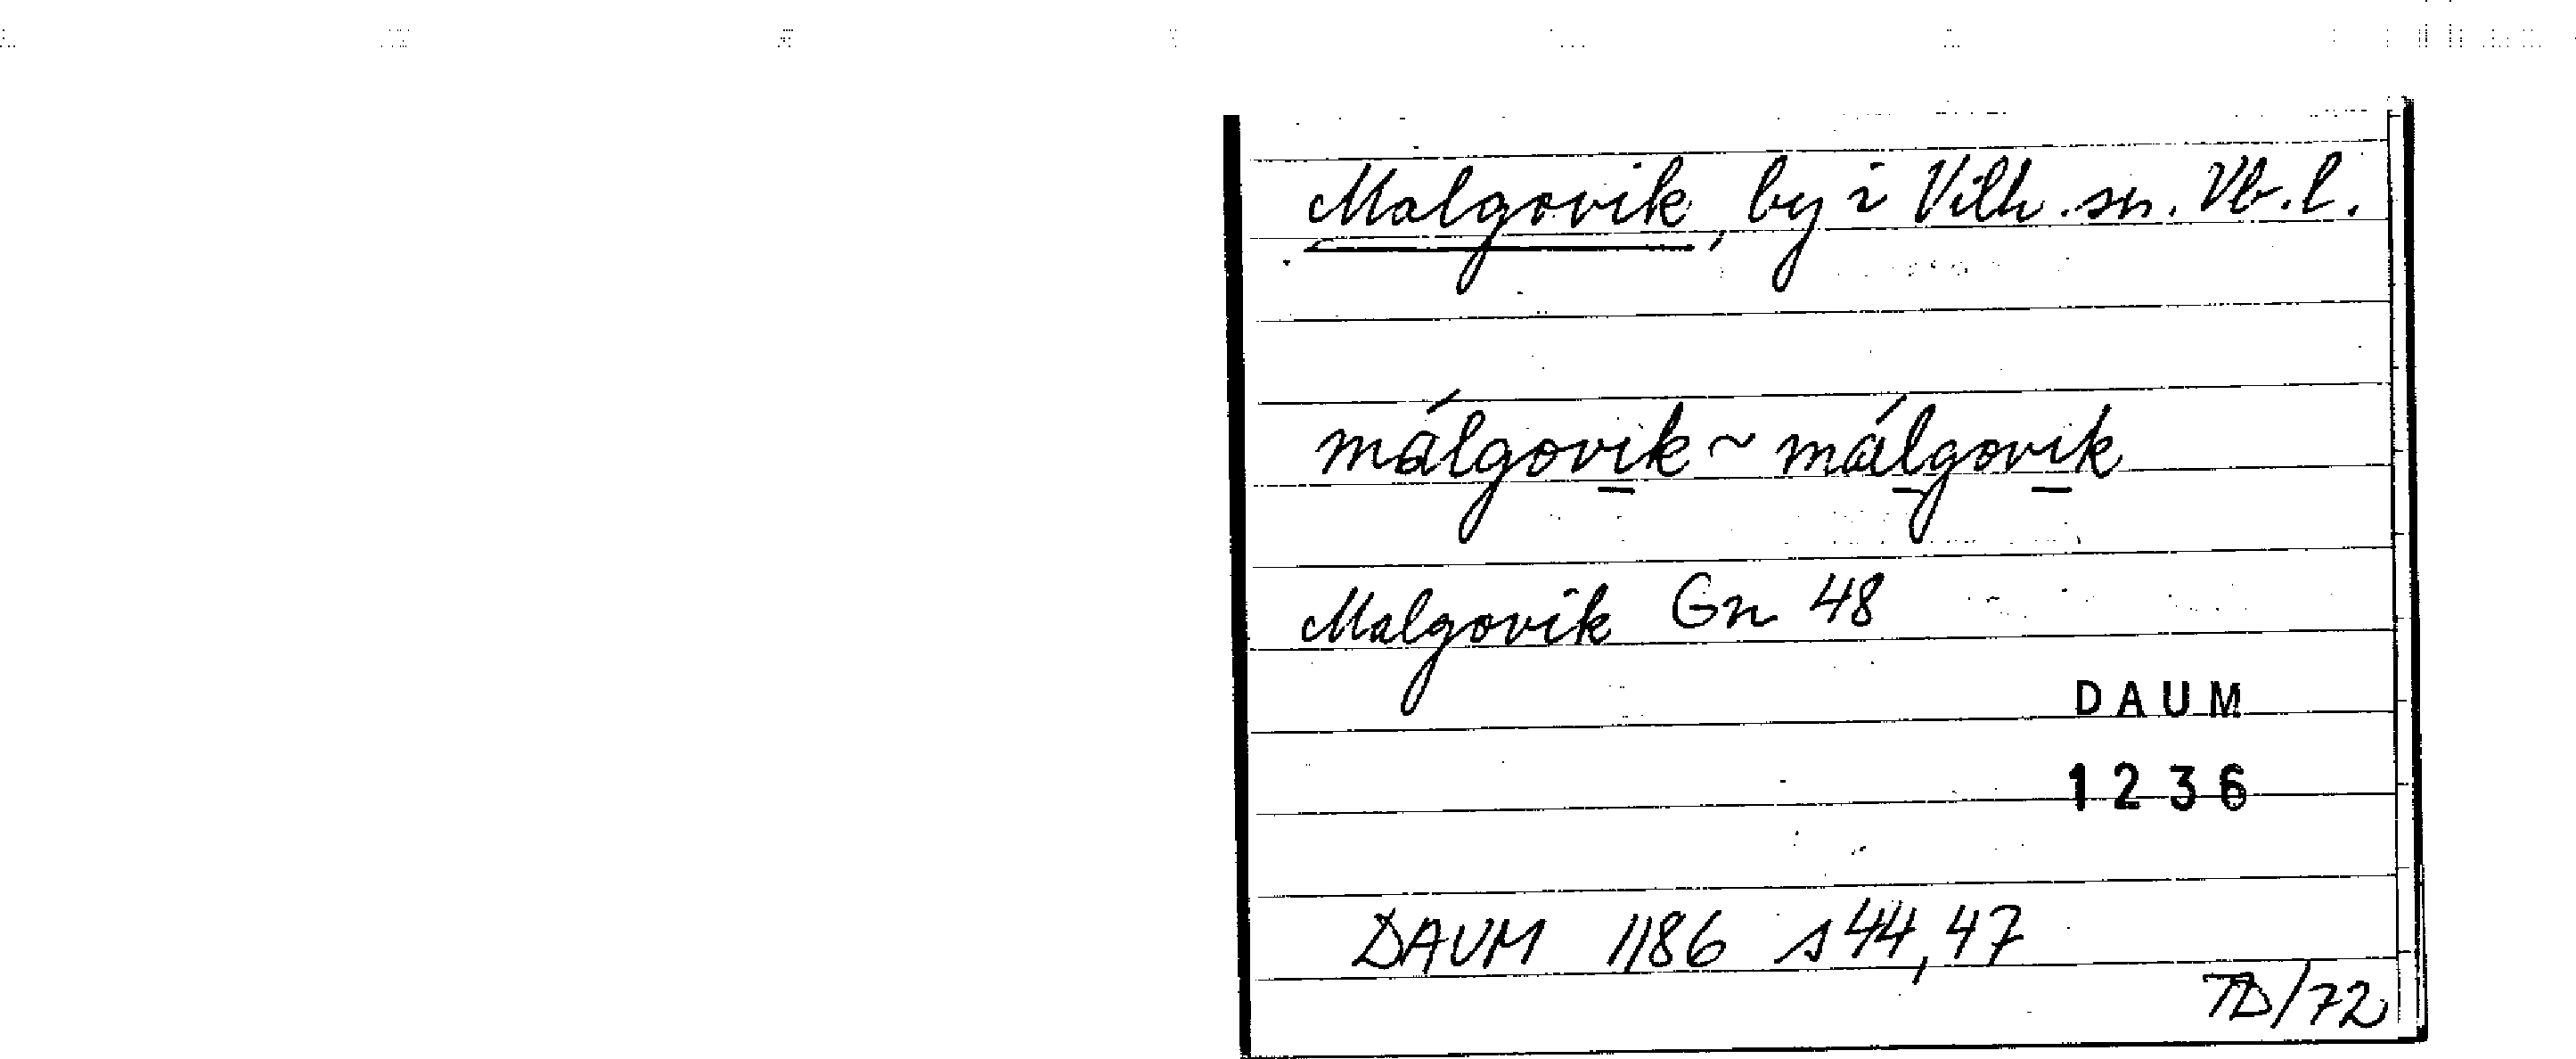 Malgovik, by i Vilh. sn. Vb. l.
málgovi̠k ~ mál̠govi̠k
Malgovik Gn 48
DAUM
1236
DAUM 1186 s 44, 47
TD/72